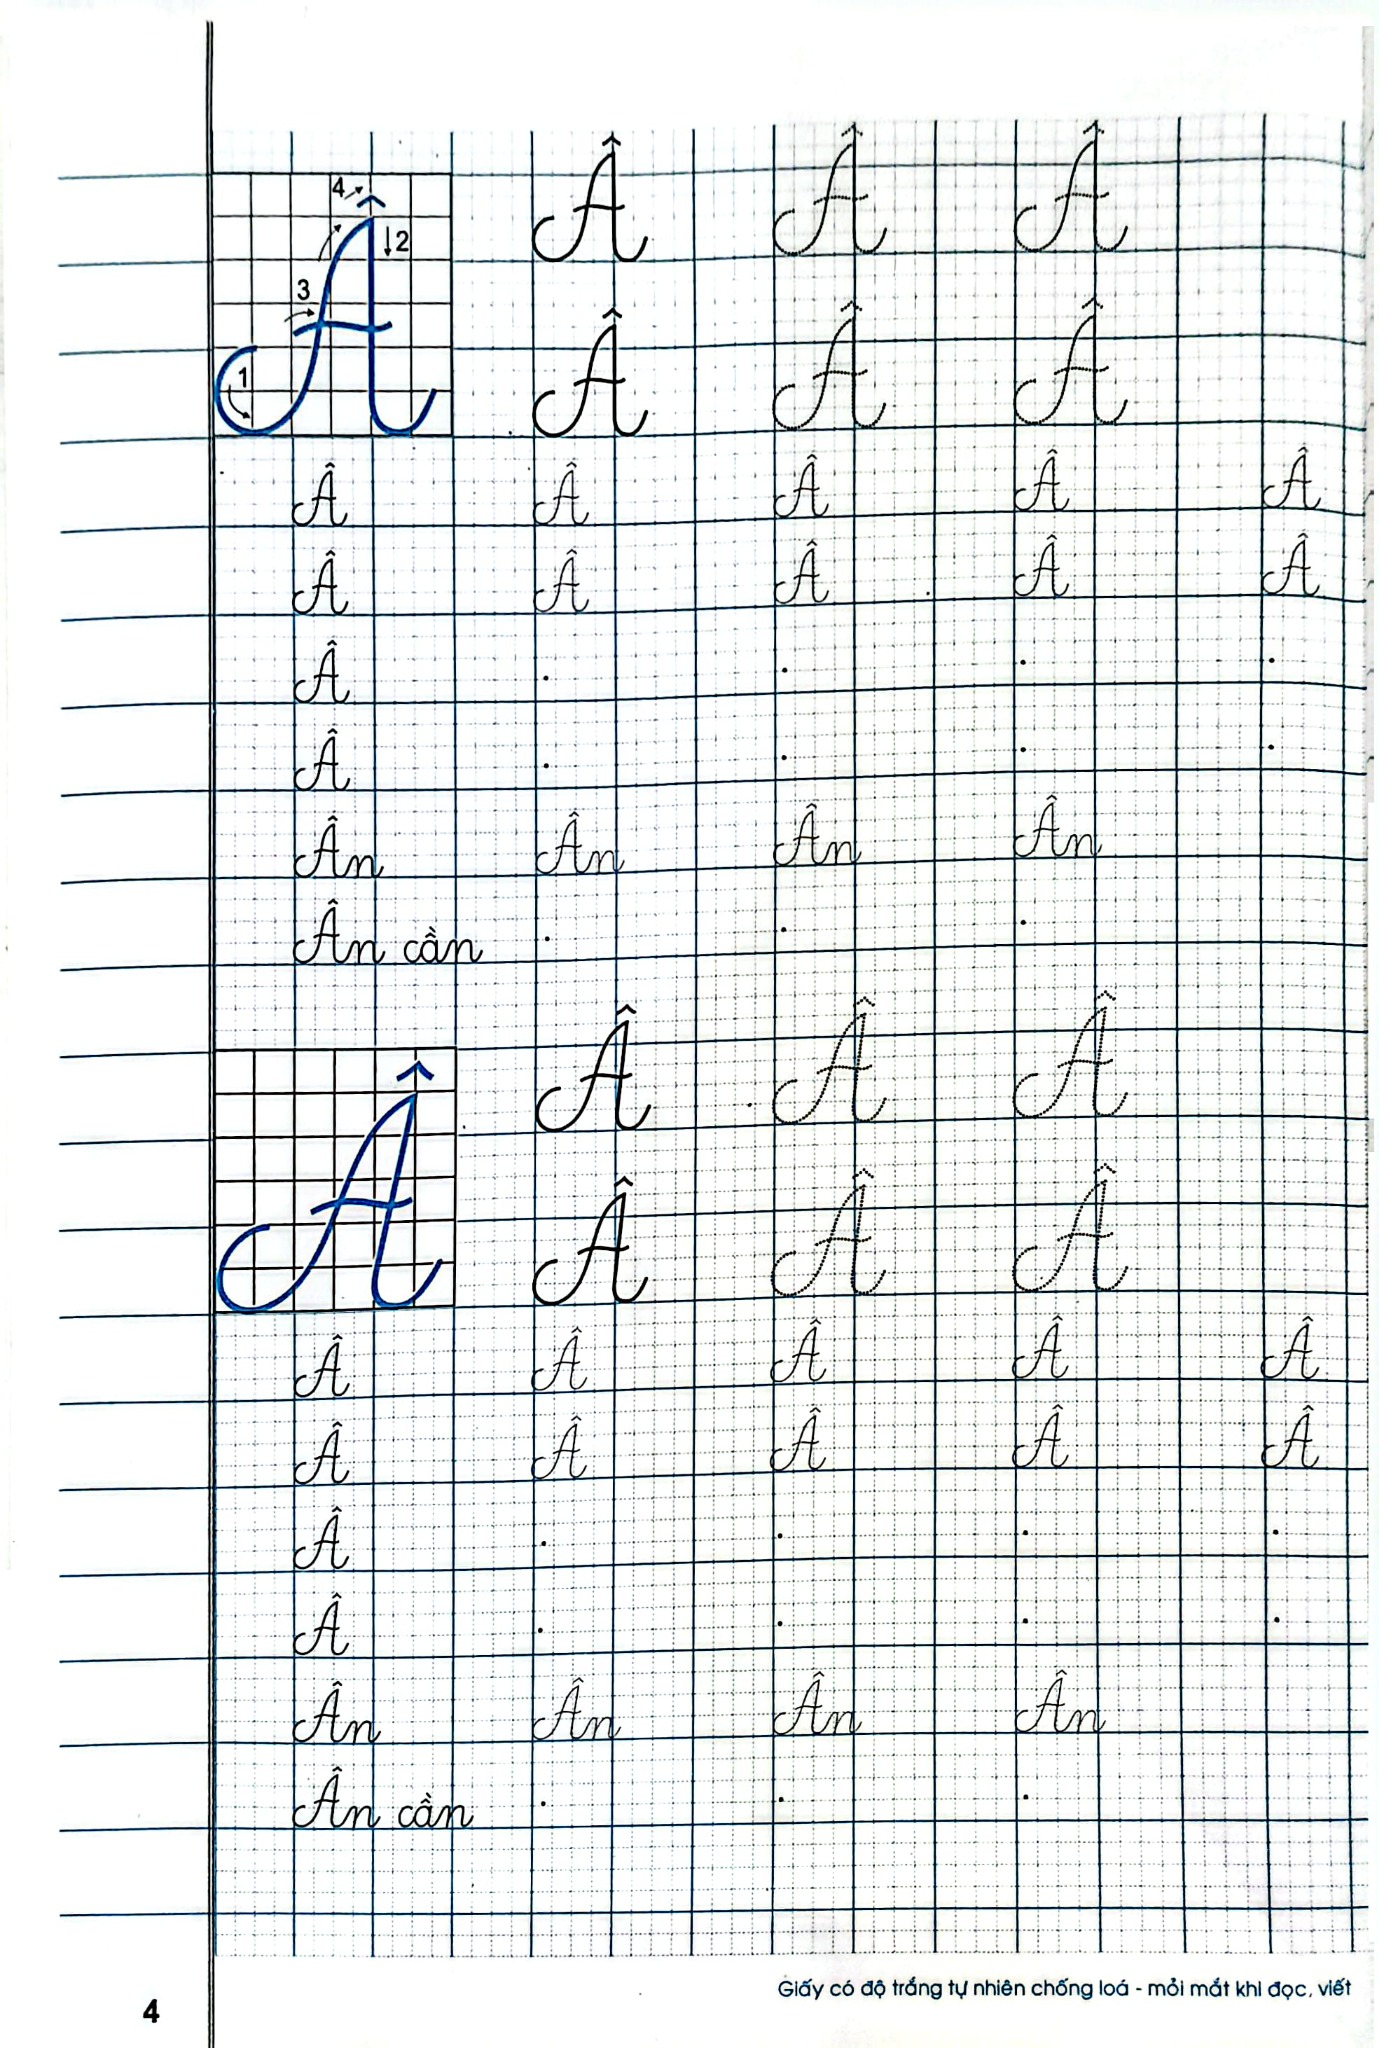 4
2
3
1
Â Â Â Â
Â Â Â
Â Â Â Â Â
Â Â Â Â Â
Â
Â
Ân Ân Ân Ân
Ân cần
Â Â Â Â
Â Â Â
Â Â Â Â Â
Â Â Â Â Â
Â
Â
Ân Ân Ân Ân
Ân cần
Giấy có độ trắng tự nhiên chống loá - mỏi mắt khi đọc, viết
4